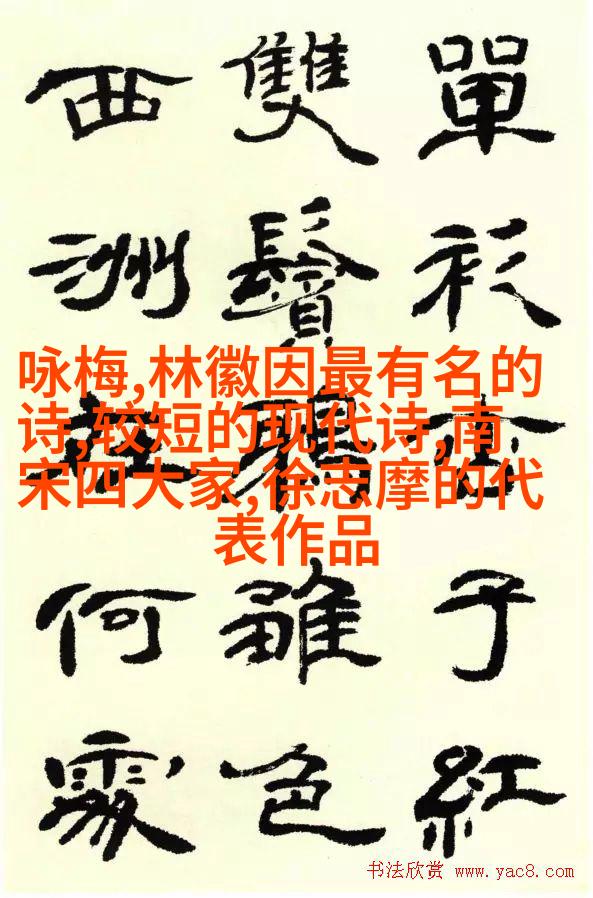 單衫杏子紅
雙鬢鴉雛色
西洲在何處
咏梅,林徽因最有名的
诗,较短的现代诗,南
宋四大家,徐志摩的代
表作品
书法欣赏 www.yac8.com